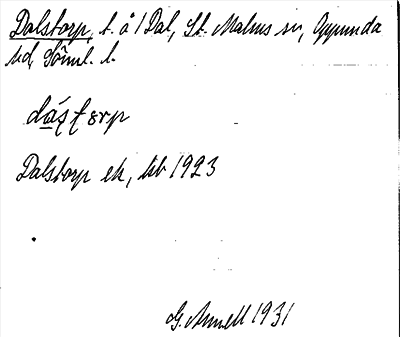 Dalstorp, t. å 1 Dal, St. Malms sn, Oppunda
hd, Söml. l.
Dalstorp ek, kb 1923
G. Annell 1931